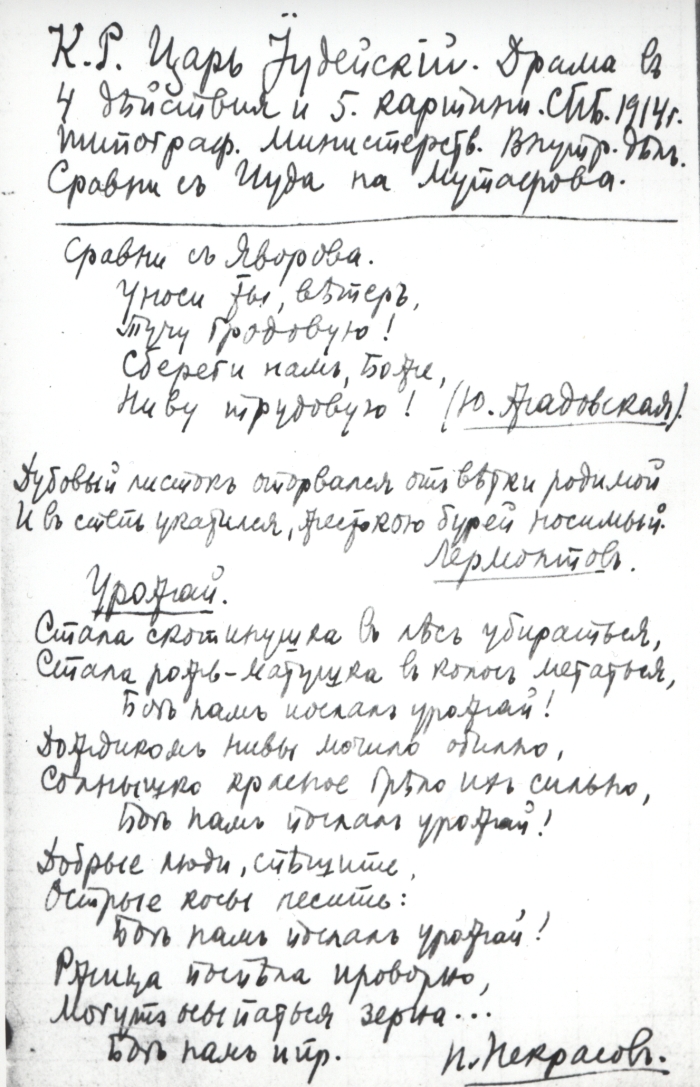 К.Р. Царь Іудейскій. Драма въ
4 дѣйствия и 5. картини. СПБ. 1914г.
типограф. Министерств. Внутр. дѣл.
Сравни съ Иуда на Мутафова.
Сравни съ Яворова.
Уноси ты, вѣтеръ,
Тучу градовую!
Сбереги намъ, Боже,
Ниву трудовую! (Ю. Жадовская).
Дубовый листокъ оторвался отъ вѣтки родимой
И въ степь укатился, жестокою бурей носимый.
Лермонтовъ.
Урожай.
Стала скотинушка въ лѣсъ убираться,
Стала рожь-матушка въ колосъ метаться,
Богъ намъ послалъ урожай!
Дождикомъ нивы мочило обильно,
Солнышко красное грѣло ихъ сильно,
Богъ намъ послалъ урожай!
Добрые люди, спѣшите,
Острые косы несите:
Богъ намъ послалъ урожай!
Ржица поспѣла проворно,
Могутъ осыпаться зерна...
Богъ намъ и пр. Н. Некрасовъ.